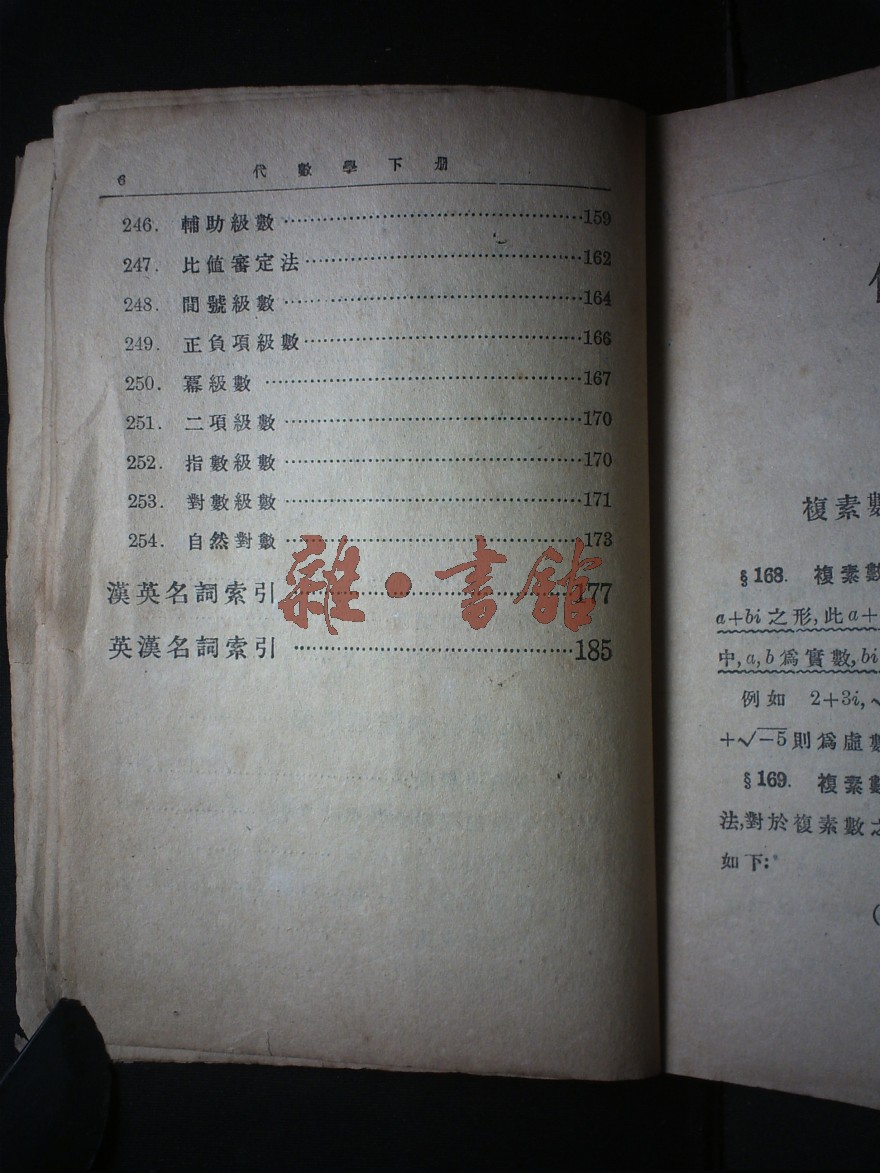 6 代數學下册
246. 輔助級數……159
247. 比值審定法……162
248. 間號級數……164
249. 正負項級數……166
250. 冪級數……167
251. 二項級數……170
252. 指數級數……170
253. 對數級數……171
254. 自然對數……173
漢英名詞索引……177
英漢名詞索引……185
雜·書館
複素數
§168. 複素數
a+bi之形,此a+
中,a,b爲實數,bi
例如 2+3i,
+√-5則爲虛數
§169. 複素數
法,對於複素數之
如下:
(